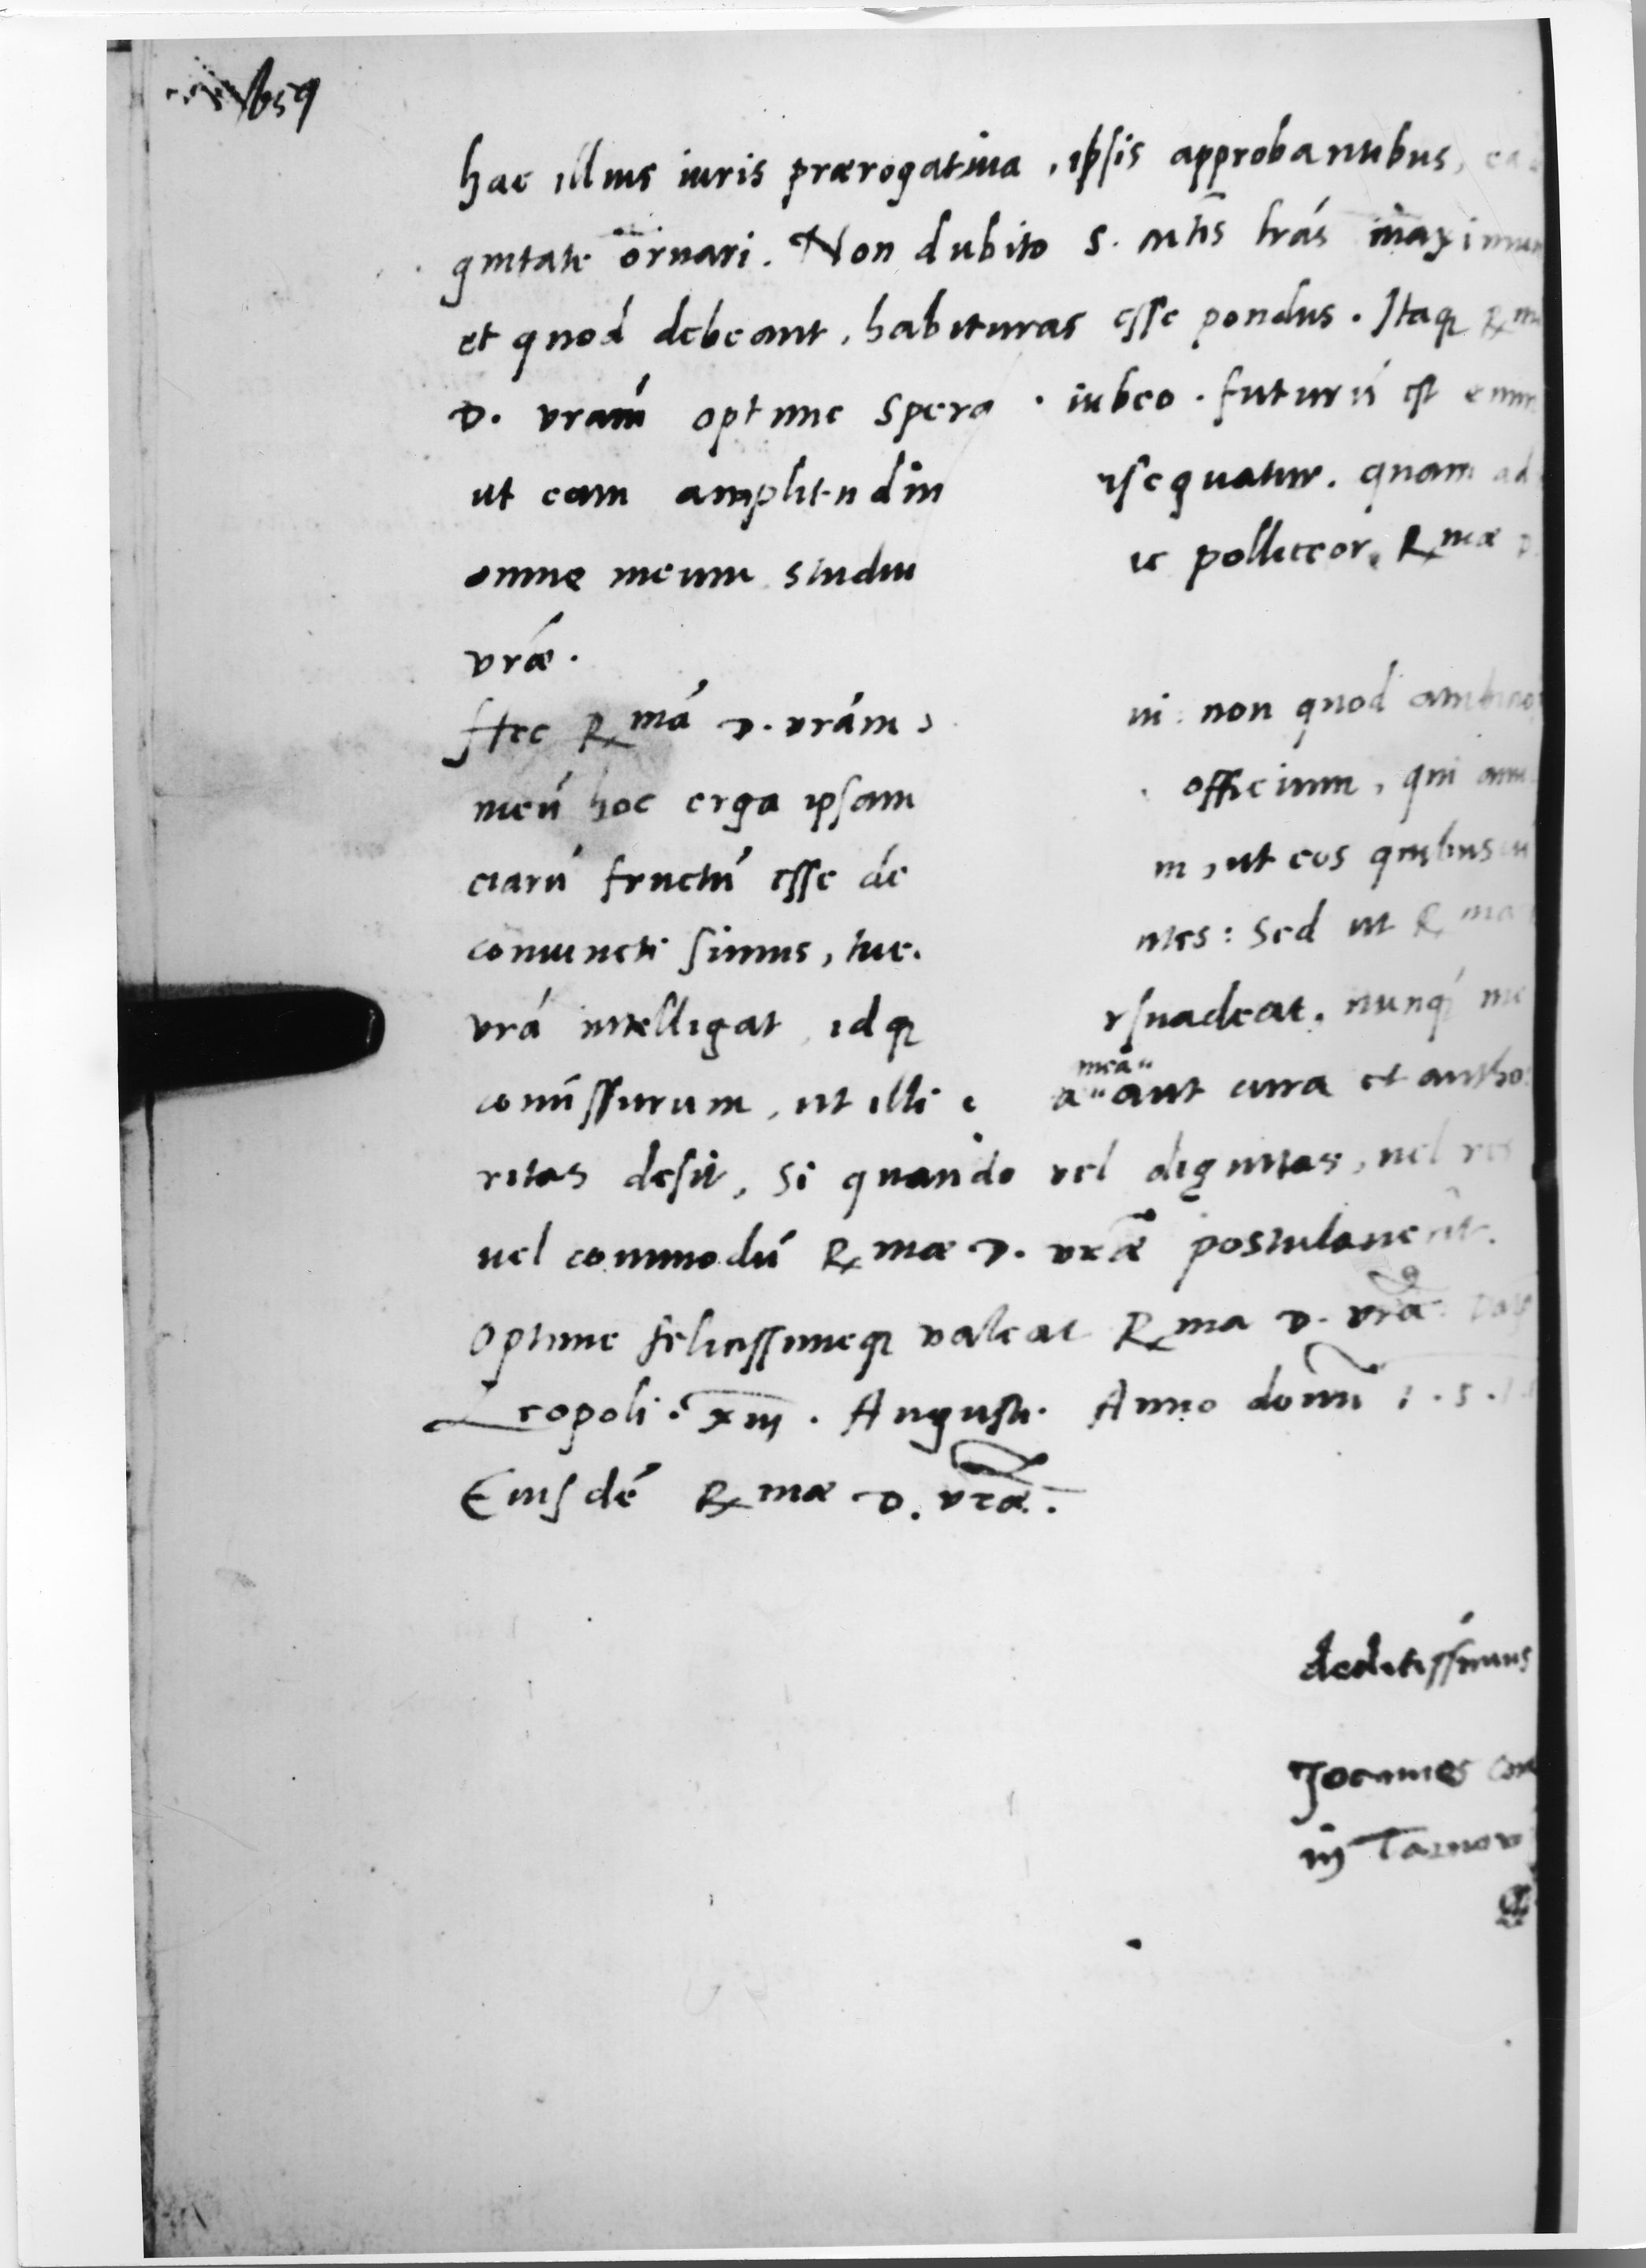 hac illius iuris prærogatiua, ipsis approbantibus, ea
gnitate ornari. Non dubito S. Mtis lrás maximum
et quod debeant, habituras esse pondus. Itaq Rm
D. vram optime spera iubeo. futurú est enim
ut eam amplitudin sequatur. quam ad
omne meum studiu polliceor, Rmæ D.
vræ.
Hec Rmá D. vrám ni non quod ambino
meú hoc erga ipsam officium, qui ami
ciarú fructú esse de m, ut eos quibus cú
coniuncti simus, tue. ntes: Sed ut Rma
vrá intelligat, idq rsuadeat, nunq́ me
meã
comissurum, ut illi a aut cura et autho
ritas desit, si quando vel dignitas, uel res
uel commodú Rmæ D. vræ postulauerit.
Optime felicissimeq valeat Rma D. vra. Dat
Leopoli. xiii. Augusti. Anno domi 1.5.
Eiusdé Rmæ D. vræ.
deditissimus
Joannes com
in Tarnow